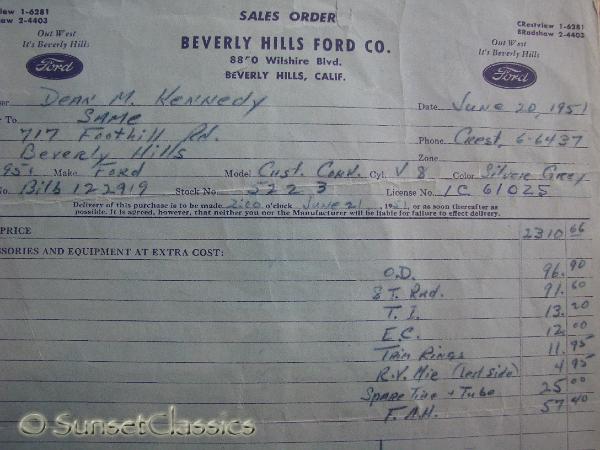 view 1-6281
shaw 2-4403
SALES ORDER
CRestview 1-6281
BRadshaw 2-4403
Out West
It's Beverly Hills
Ford
BEVERLY HILLS FORD CO.
8850 Wilshire Blvd.
BEVERLY HILLS, CALIF.
Out West
It's Beverly Hills
Ford
er Dean M. Kennedy Date June 20, 1951
r To SAME
717 Foothill Rd. Phone Crest. 6-6437
Beverly Hills Zone
951 Make Ford Model Cust. Conv. Cyl. V 8 Color Silver Grey
No. B1LB 122919 Stock No. 5223 License No. 1C 61025
Delivery of this purchase is to be made 2:00 o'clock June 21, 1951, or as soon thereafter as
possible. It is agreed, however, that neither you nor the Manufacturer will be liable for failure to effect delivery.
PRICE 2310 66
SSORIES AND EQUIPMENT AT EXTRA COST:
O.D. 96.90
8 T. Rad. 91.60
T. I. 13.20
E.C. 12.00
Trim Rings 11.95
R.V. Mir (Left Side) 4.95
Spare Tire + Tube 25.00
F.A.H. 57.40
© SunsetClassics